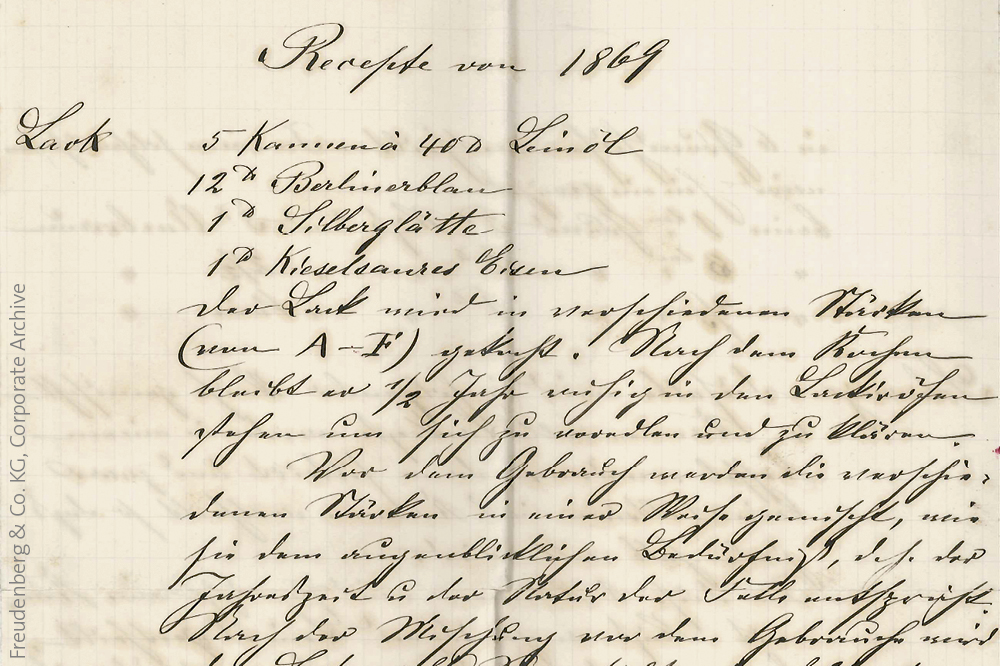 Recepte von 1869
Lack 5 Kannen à 40 ℔ Leinöl
12 ℔ Berlinerblau
1 ℔ Silberglätte
1 ℔ Kieselsaures Eisen
Der Lack wird in verschiedenen Stärken
(von A–F) gekocht. Nach dem Kochen
bleibt er 1/2 Jahr ruhig in den
stehen um sich zu veredlen und zu klären.
Vor dem Gebrauch werden die verschie-
denen Stärken in einer Weise gemischt, wie
sie dem augenblicklichen Bedürfniß, d. h. der
Jahreszeit u der Natur der Felle entspricht.
Nach der Mischung vor dem Gebrauche wird
Freudenberg & Co. KG, Corporate Archive